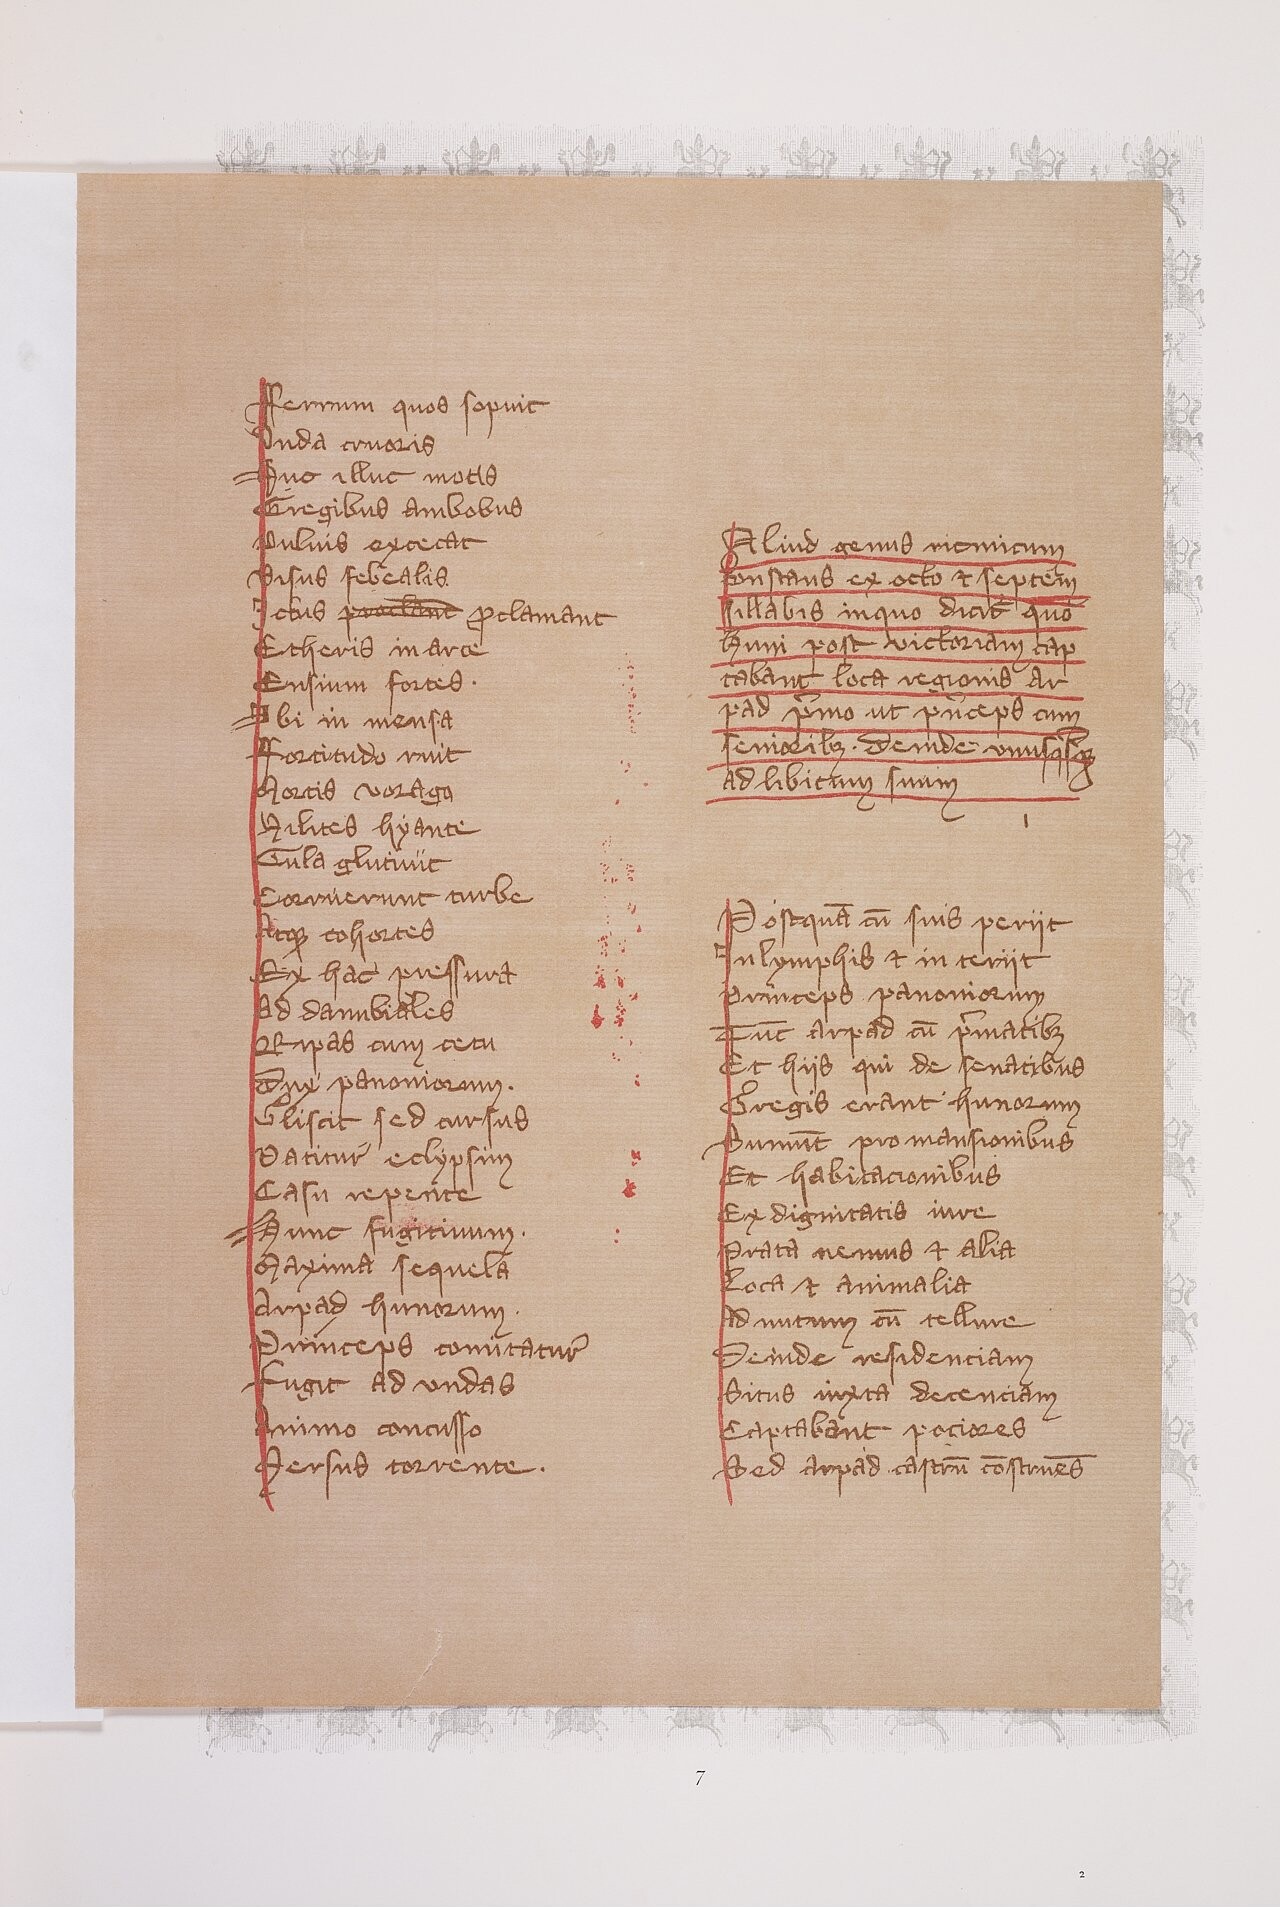 Ferrum quos sopuit
Vnda cruoris
Huc illuc motis
Gregibus ambobus
Puluis excecat
Visus feb'ealis
Ictus proclant p̲clamant
Etheris in arce
Ensium fortes.
Ibi in mensa
Fortitudo ruit
Mortis vorago
Milites hyante
Gula glutiuit
Corruerunt turbe
Atqꝫ cohortes
Ex hac pressura
Ad danubiales
Ripas cum cetu
Dux panoniorum.
Gliscit sed cursus
Patitur eclypsim
Casu repente
Hunc fugitiuum.
Maxima sequela
Arpad hunorum.
Princeps comitatur
Fugit ad vndas
Animo concusso
Versus torrente.
Aliud genus ricmicum
Constans ex octo ⁊ septem
sillabis inquo dicit' quo
huni post victoriam cap
tabant loca regionis Ar
pad p'mo ut p'nceps cum
senioribꝫ. Deinde vnusq'sqꝫ
ad libitum suum
Postquā cū suis periit
In lymphis ⁊ in teriit
Princeps panoniorum
Tūc arpad cū p'matibꝫ
Et hijs qui de senatibus
Gregis erant hunorum
Sumūt pro mansionibus
Et habitacionibus
Ex dignitatis iure
Prata nemus ⁊ alia
Loca ⁊ animalia
Ad nutum cū tellure
Deinde residenciam
Situs iuxta decenciam
Captabant pociores
Sed arpad castrū cōstruēs
7
2